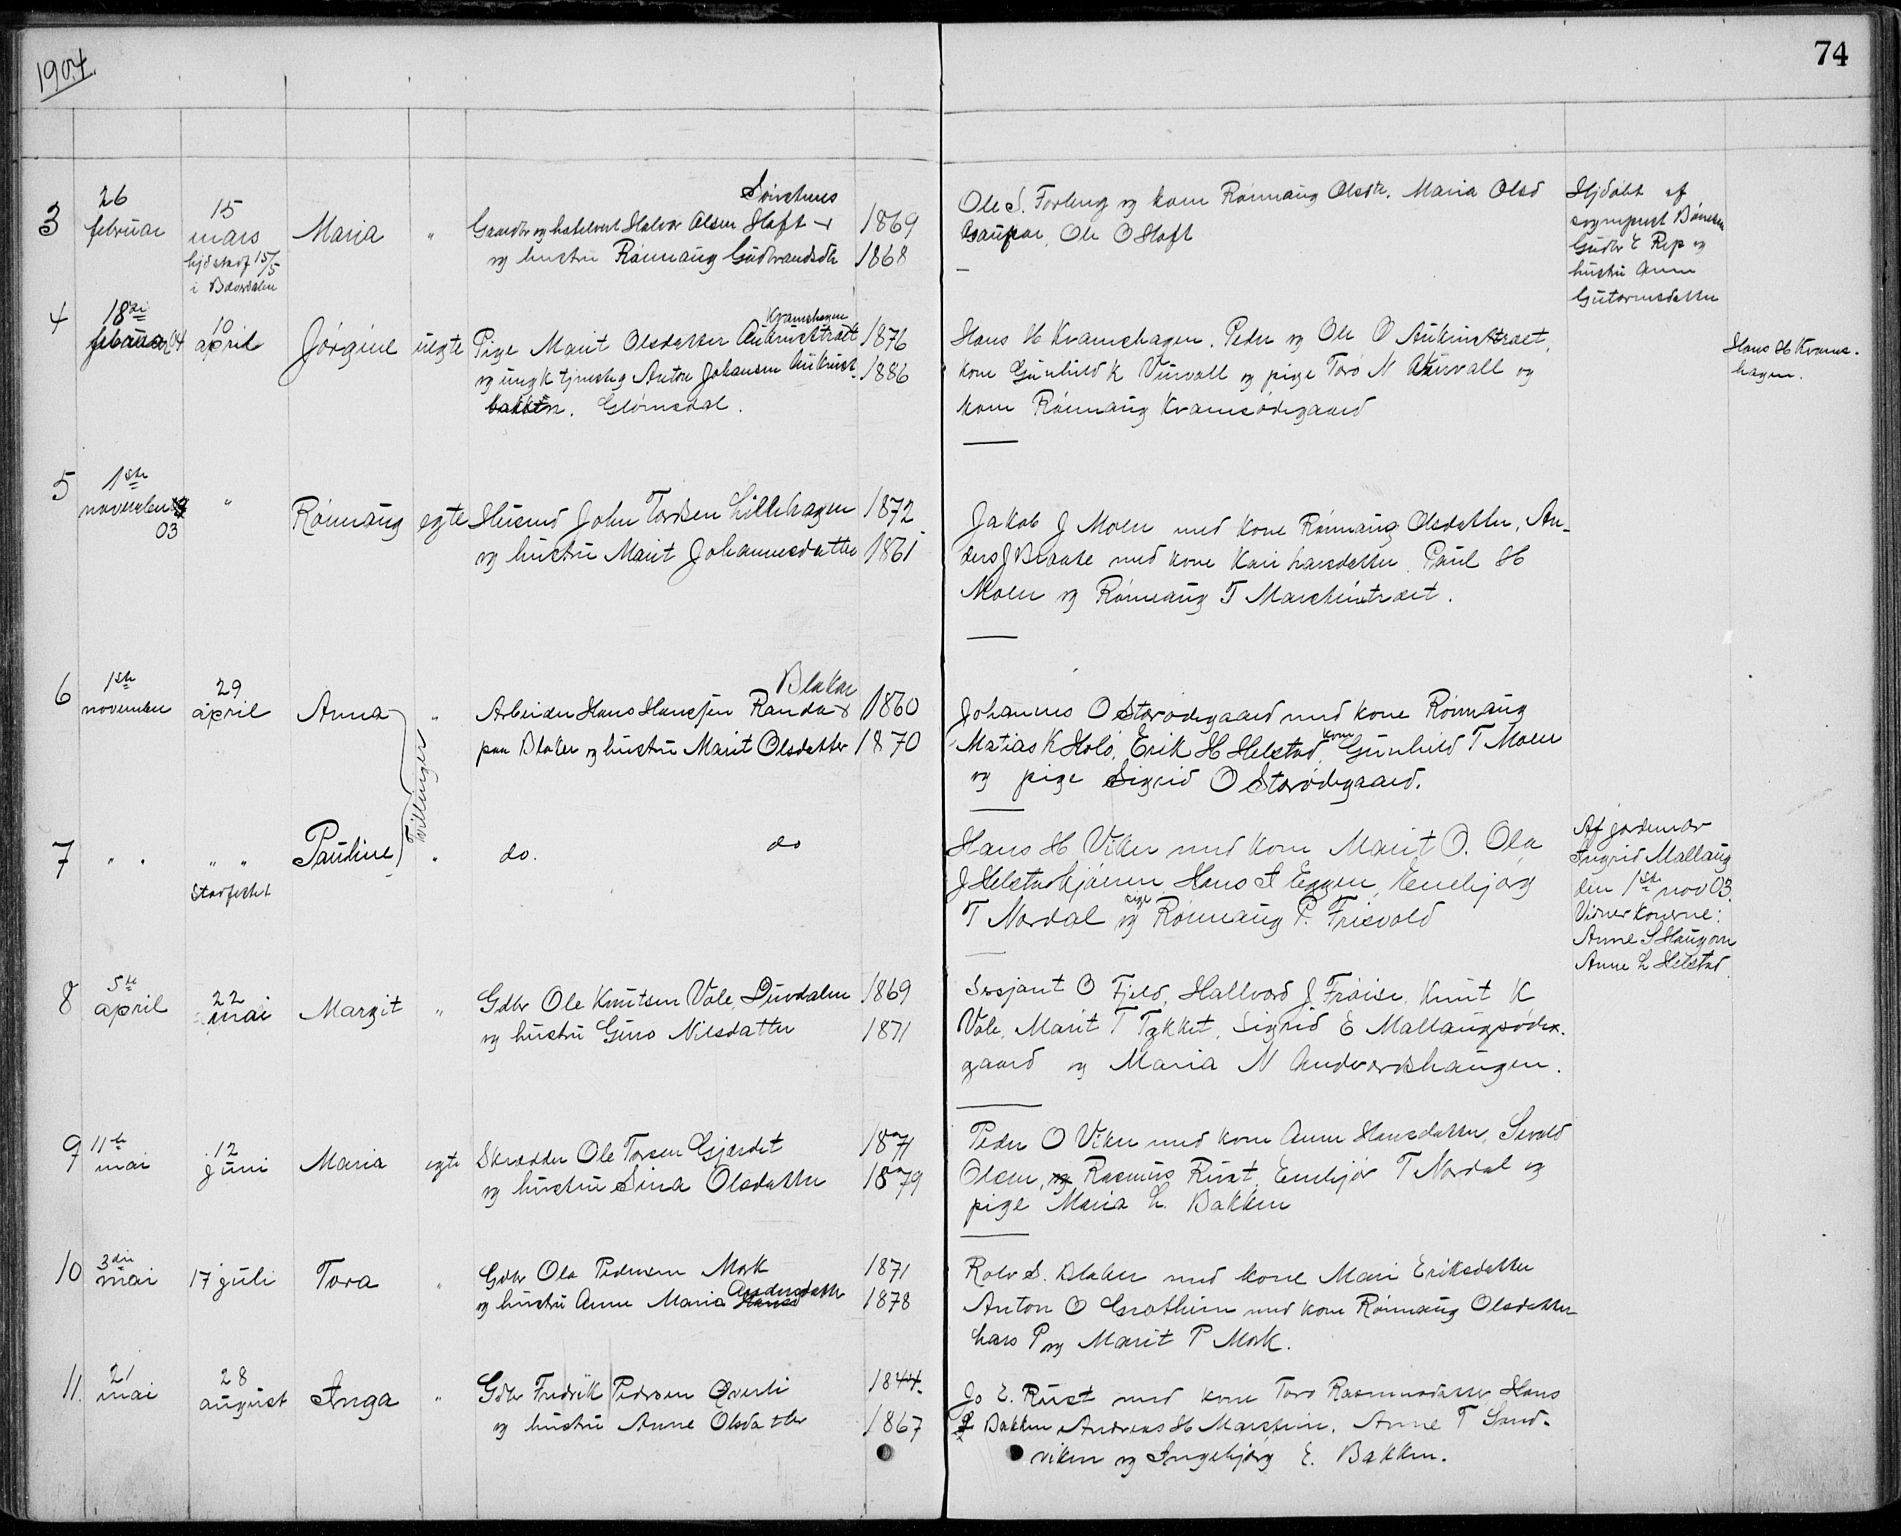 1904.
74
3
26
februar
15
mars
hjdstadf 15/5
i Bøverdalen
Maria
"
Gaardbr og Halvor Olsen Hoft
og hustru Rønnaug Gudbrandsdtr
1869
1868
Ole S. Forberg og kone Rønnaug Olsdtr. Maria Olsd
Gaupar, Ole O Hoft
Hjdøbt af
Gudbr E Rep og
hustru Anne
Gutormsdatter
4
18de
februar 04
10
april
Jørgine
uegte
Kvamshagen
Pige Marit Olsdatter Aukrustræet
og ungk tjenestg Anton Johansen Aukrust-
bakken. Glømsdal.
1876
1886
Hans H Kvamshagen. Peder og Ole O Aukrustræet,
kone Gunhild K Vurvall og pige Toro N Vurvall og
kone Rønnaug Kvamsødegaard
Hans H Kvams-
hagen.
5
1ste
november
03
"
Rønnaug
egte
Husmd John Torsen Lillehagen
og hustru Marit Johannesdatter
1872
1861
Jakob J Moen med kone Rønnaug Olsdatter, An-
ders J Braate med kone Kari Larsdatter. Paul H
Moen og Rønnaug T
6
1ste
november
29
april
Anna
"
Tvillinger
Blaker
Arbeider Hans Hansen Randa
paa Blaker og hustru Marit Olsdatter
1860
1870
Johannes O Storødegaard med kone Rønnaug
Matias K Holø, Erik H Helstad, kone Gunhild T Moen
og pige Sigrid O Storødegaard.
7
" "
" "
Stadfestet
Pauline
"
do.
do
Hans H Viken med kone Marit O. Ola
J Helstadkjærn, Hans A Eggen, Enebjørg
T Nordal og pige Rønnaug P. Frisvold
Af jordemor
Ingrid Mallaug
den 1ste nov 03.
Vidner konerne:
Anne S Haugom
Anne L Helstad
8
5te
april
22
mai
Margit
"
Gdbr Ole Knutsen Vole, Duvdalen
og hustru Guro Nilsdatter
1869
1871
Sersjant O Fjeld, Hallvord J Frøise, Knut K
Vole, Marit T Tykket, Sigrid E Mallaugsøde-
gaard og Maria N Andvordshaugen.
9
11te
mai
12
juni
Maria
egte
Skrædder Ole Torsen Gjærdet
og hustru Sina Olsdatter
1871
1879
Peder O Viken med kone Anne Hansdatter, Sevald
Olsen, og Rasmus Rust, Enebjør T Nordal og
pige Maria L. Bakken
10
3die
mai
17 juli
Tora
"
Gdbr Ola Pedersen Mork
og hustru Anne Maria Hansd Andersdatter
1871
1878
Rolv S. Blaker med kone Mari Eriksdatter
Anton O Grothim med kone Rønnaug Olsdatter
Lars P og Marit P Mork.
11.
21
mai
28
august
Inga
"
Gdbr Fredrik Pedersen Øverli
og hustru Anne Olsdatter
1844.
1867
Jo E. Rust med kone Toro Rasmusdatter Hans
Bakken, Andreas H Marstein, Anne T Sand-
viken og Ingebjørg E. Bakken.